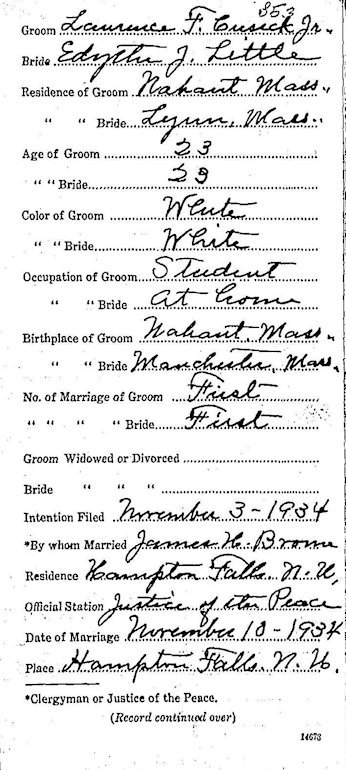 353
Groom Laurence F. Cusick Jr.
Bride Edythe J. Little
Residence of Groom Nahant Mass.
" " Bride Lynn, Mass.
Age of Groom 23
" " Bride 23
Color of Groom White
" " Bride White
Occupation of Groom Student
" " Bride At Home
Birthplace of Groom Nahant, Mass.
" " Bride Manchester, Mass.
No. of Marriage of Groom First
" " " " Bride First
Groom Widowed or Divorced
Bride " " "
Intention Filed November 3-1934
*By whom Married James H. Brown
Residence Hampton Falls. N. H,
Official Station Justice of the Peace
Date of Marriage November 10-1934
Place Hampton Falls. N. H.
*Clergyman or Justice of the Peace.
(Record continued over)
14673